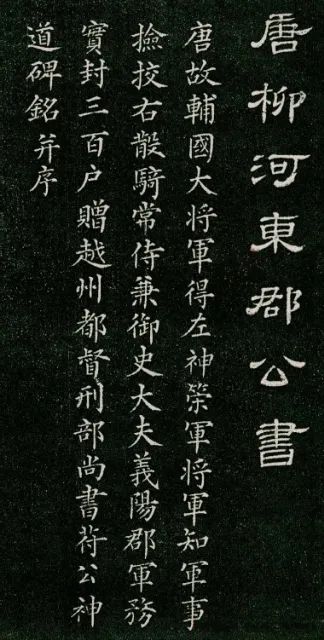 唐柳河東郡公書
唐故輔國大將軍得左神策軍将軍知軍事
撿挍右散騎常侍兼御史大夫義陽郡軍務
實封三百户贈越州都督刑部尚書苻公神
道碑銘并序